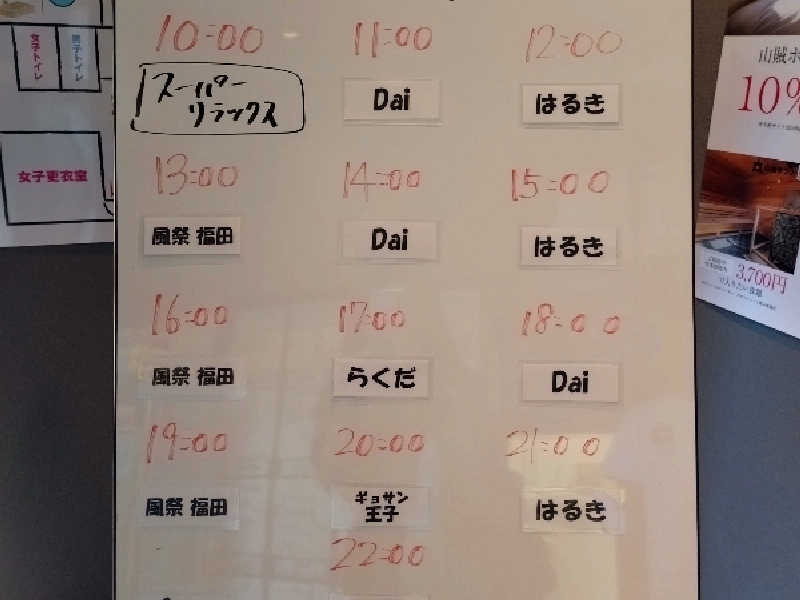 女子トイレ
男子トイレ
女子更衣室
10:00
11:00
12:00
スーパー
リラックス
Dai
はるき
13:00
14:00
15:00
風祭 福田
Dai
はるき
16:00
17:00
18:00
風祭 福田
らくだ
Dai
19:00
20:00
21:00
風祭 福田
ギョサン
王子
はるき
22:00
山賊
10%
3,700円